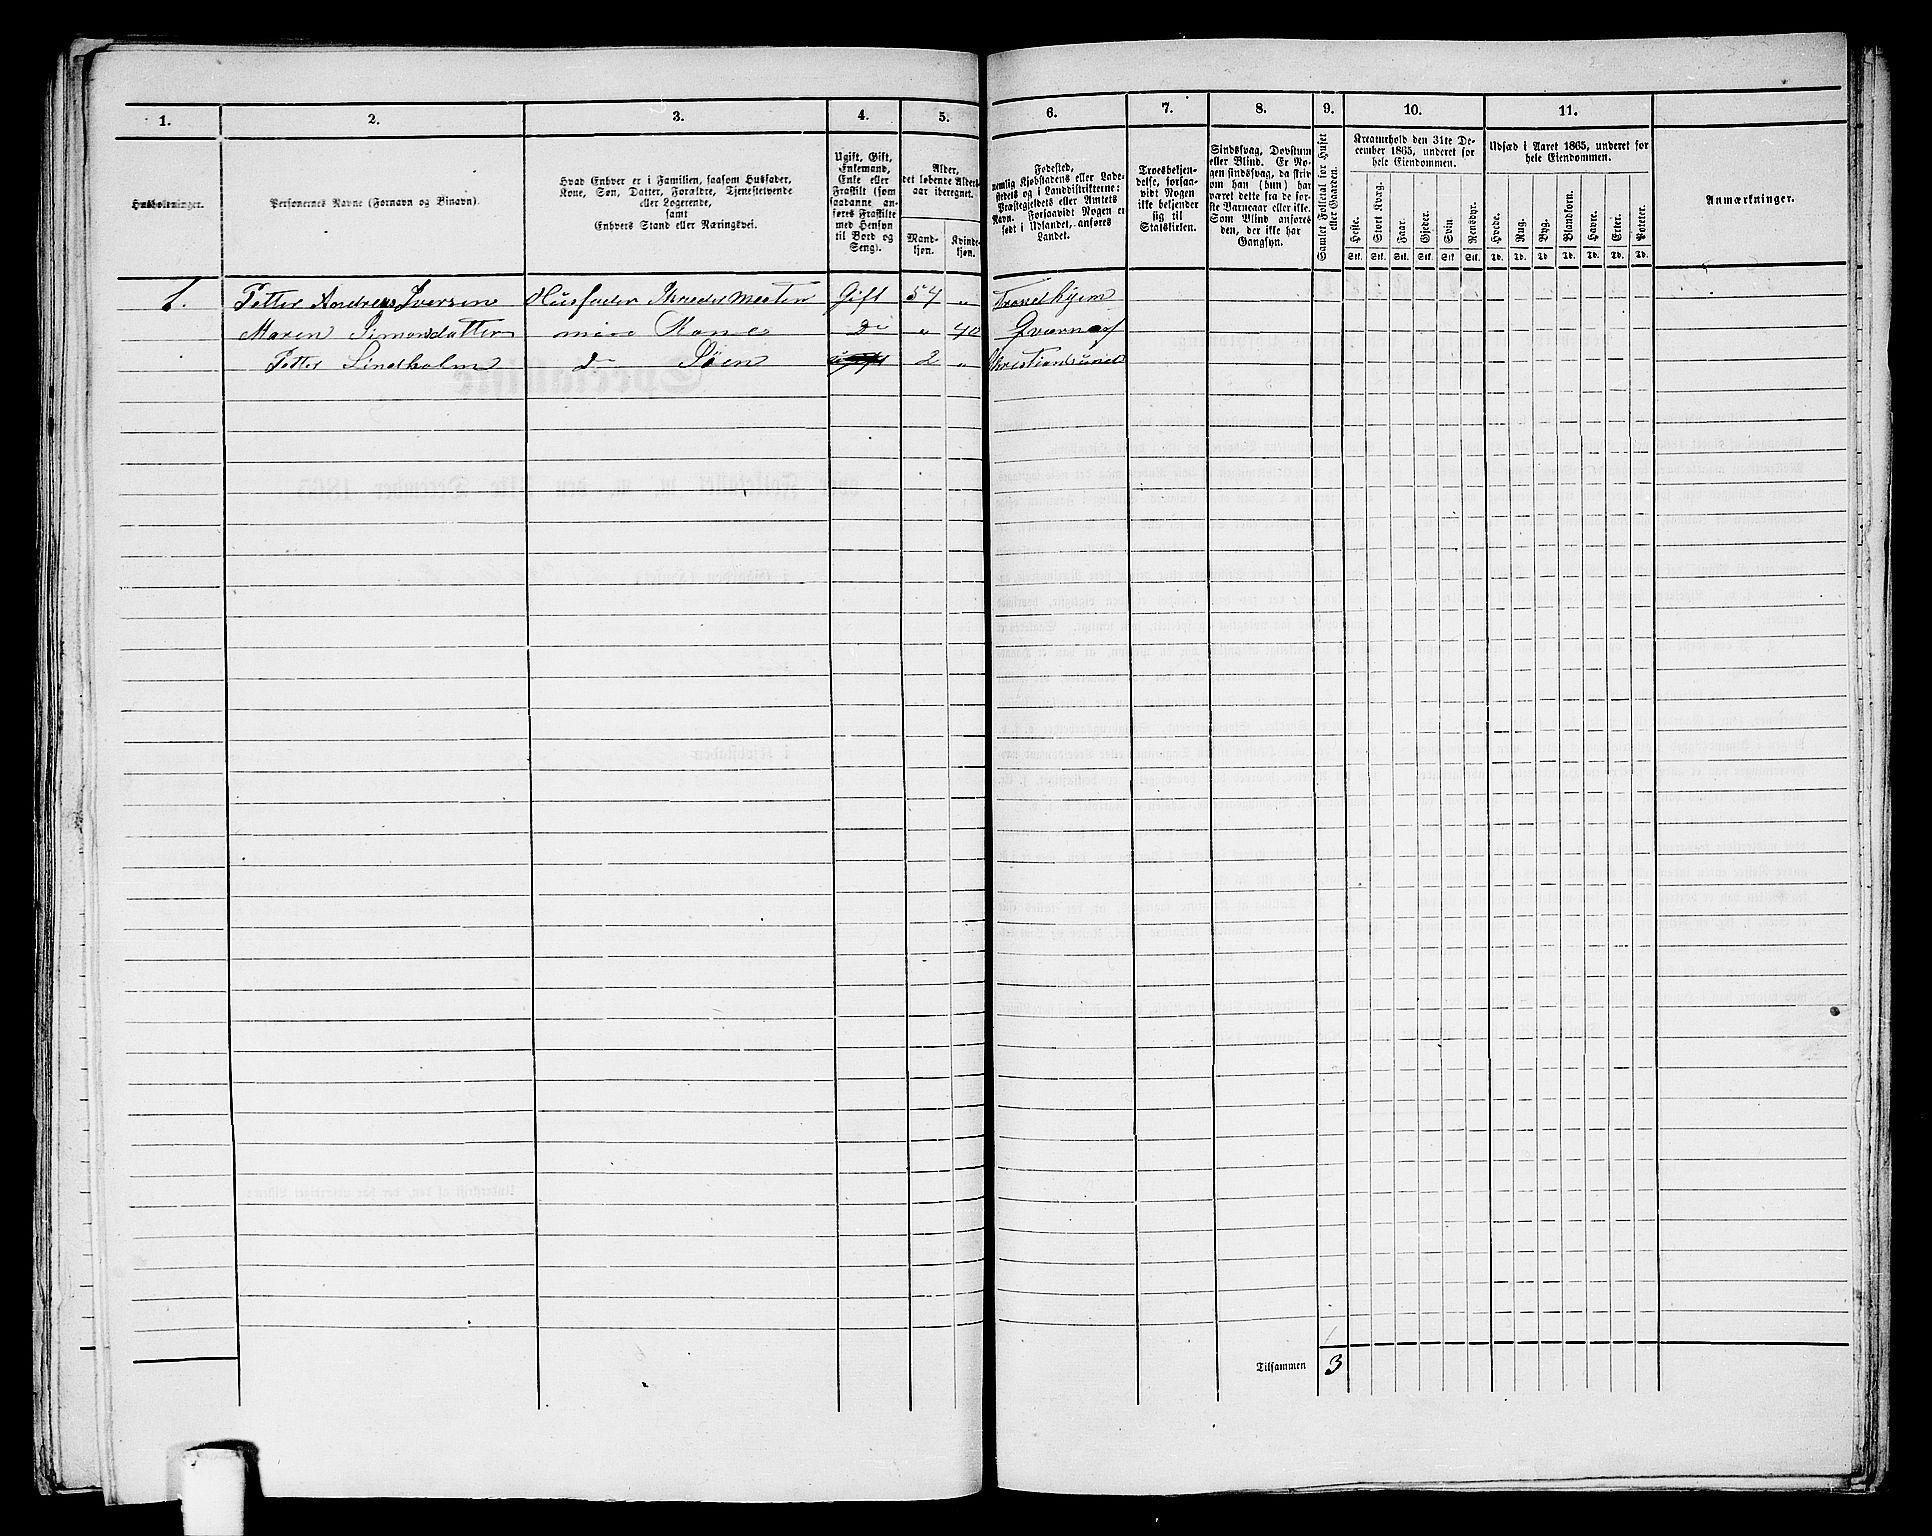 1. 2. 3. 4. 5. 6. 7. 8. 9. 10. 11.
Husholdninger.
Personernes Navne (Fornavn og Binavn).
Hvad Enhver er i Familien, saasom Husfader,
Kone, Søn, Datter, Forældre, Tjenestetyende
eller Logerende,
samt
Enhvers Stand eller Næringsvei.
Ugift, Gift,
Enkemand,
Enke eller
Fraskilt (som
saadanne an-
føres Fraskilte
med Hensyn
til Bord og
Seng).
Alder,
det løbende Alders-
aar iberegnet.
Mand-
kjøn.
Kvinde-
kjøn.
Fødested,
nemlig Kjøbstadens eller Lade-
stedets og i Landdistrikterne:
Præstegjeldets eller Amtets
Navn. Forsaavidt Nogen er
født i Udlandet, anføres
Landet.
Troesbekjen-
delse, forsaa-
vidt Nogen
ikke bekjender
sig til
Statskirken.
Sindssvag, Døvstum
eller Blind. Er No-
gen sindssvag, da skriv
om han (hun) har
været dette fra de før-
ste Barneaar eller ikke.
Som Blind anføres
den, der ikke har
Gangsyn.
Samlet Folketal for Huset
eller Gaarden.
Kreaturhold den 31te De-
cember 1865, underet for
hele Eiendommen.
Heste. Stort Kvæg. Faar. Gjeder. Svin Rensdyr.
Stk. Stk. Stk. Stk. Stk. Stk.
Udsæd i Aaret 1865, underet for
hele Eiendommen.
Hvede. Rug. Byg. Blandkorn. Havre. Erter. Poteter.
Td. Td. Td Td. Td. Td. Td.
Anmærkninger.
1. Petter Andreas Iversen Husfader Skredermester Gift 54 " Trondhjem
Maren Simonsdatter Kone Do " 40
Petter Lindholm d Søen 2 " Christiansund
Tilsammen 3